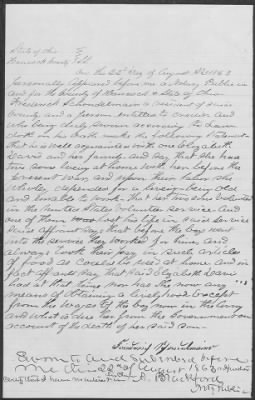 State of Ohio }
Hancock County } SS
On the 22nd day of August AD 1863
Personally appeared before me a Notary Public in
and for the County of Hancock & State of Ohio
Frederick Schondelmaier a resident of said
County and a person entitled to credit and
who being duly sworn according to law
doth on his oath make the following Statement
that he is well acquainted with one Elizabeth
and her family and Say that She has
two sons living at home with her before the
present war, and upon their labor She
wholey depended for a living being old
and unable to work, that her two sons volunteered
in the United States Volunteer Service And
one of them lost his life in said Service
Affiant Says that before the boys went
into the service they worked for him, and
always took their pay in Such articles
of food as could be used at home And in
fact affiant Say that Said Elizabeth
had at that time nor has She now any
means of obtaining a livelyhood except
from the wages of the boy now in the army
and what is due her from the Government on
account of the death of her Said Son
Frederick Schondelmaier
Sworn to and Subscribed before
me this 22nd of August 1863
A. Blackford
Not Public